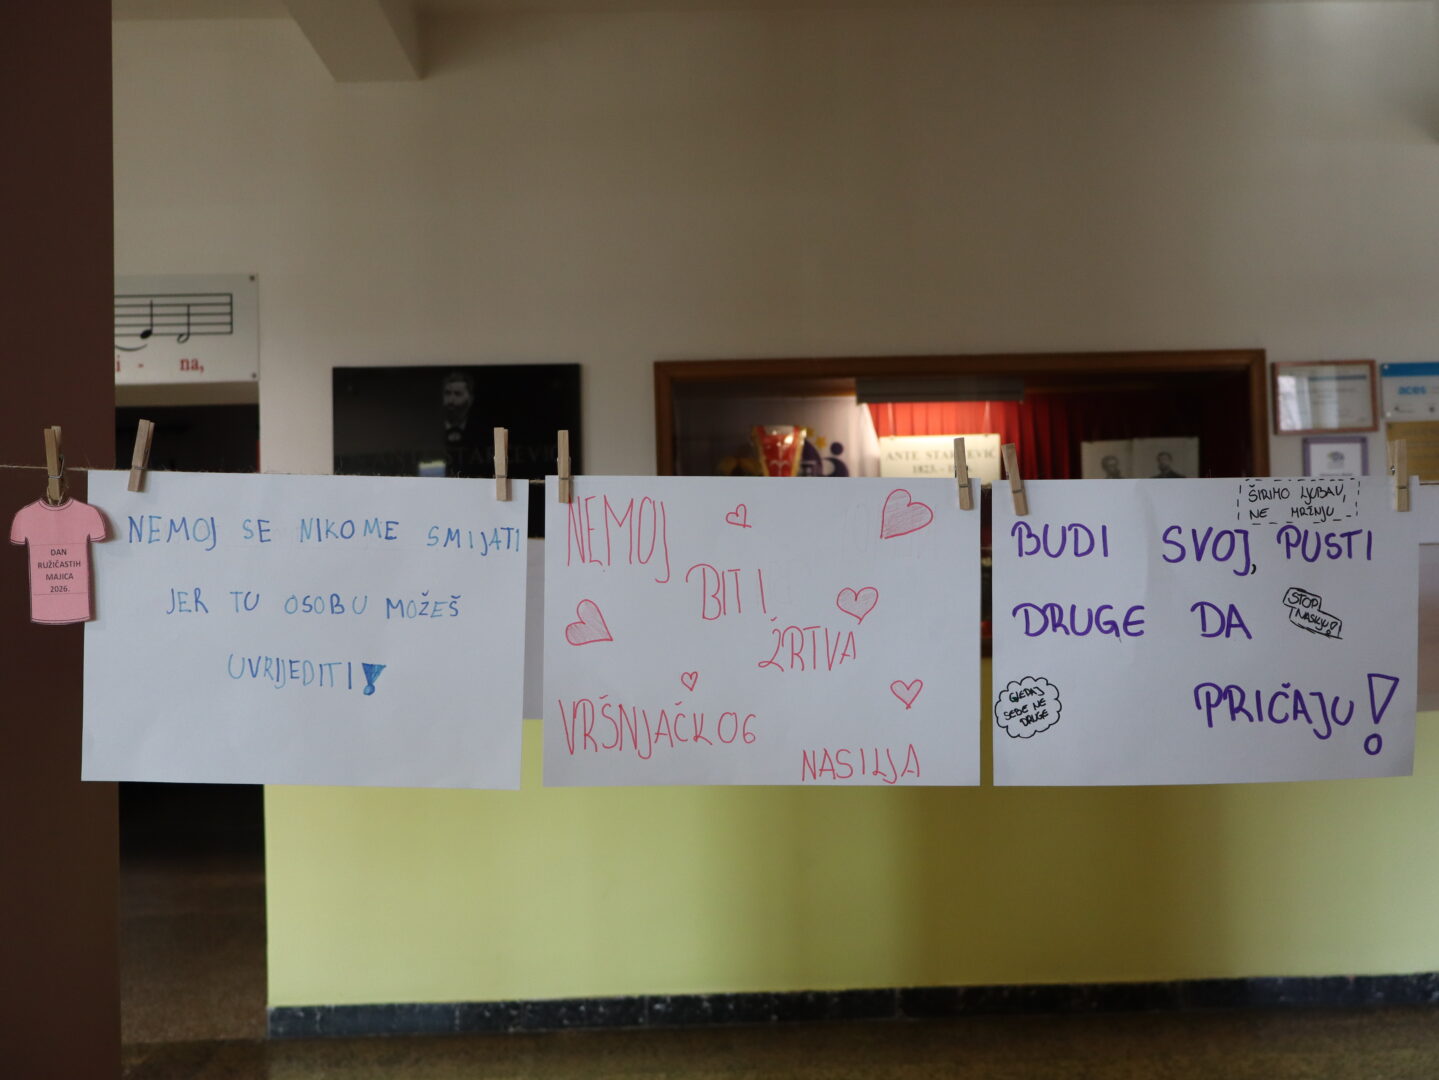 i - na,
ANTE STARČEVIĆ
ANTE STARČEVIĆ
aces
DAN
RUŽIČASTIH
MAJICA
2026.
NEMOJ SE NIKOME SMIJATI
JER TU OSOBU MOŽEŠ
UVRIJEDITI!
NEMOJ
BITI
ŽRTVA
VRŠNJAČKOG
NASILJA
ŠIRIMO LJUBAV,
NE MRŽNJU
BUDI SVOJ, PUSTI
DRUGE DA
STOP
NASILJU!
PRIČAJU!
GLEDAJ
SEBE NE
DRUGE